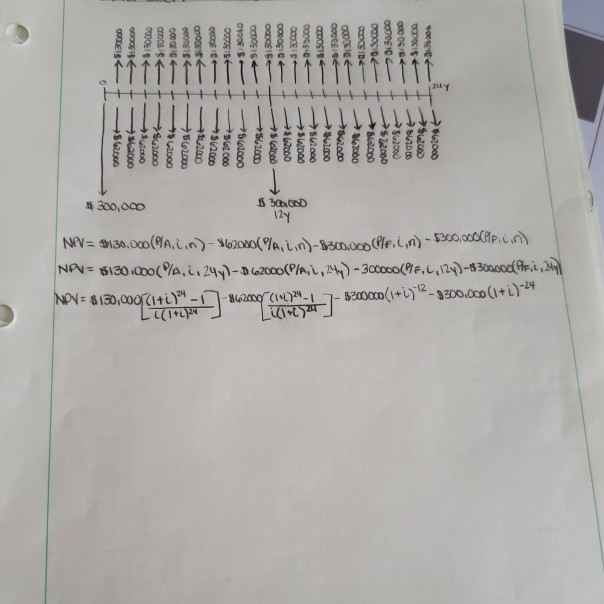 $130,000 $130,000 $130,000 $130,000 $130,000 $130,000 $130,000 $130,000 $130,000 $130,000 $130,000 $130,000 $130,000 $130,000 $130,000 $130,000 $130,000 $130,000 $130,000 $130,000 $130,000 $130,000 $130,000
0 24y
$62000 $62000 $62000 $62000 $62000 $62000 $62000 $62000 $62000 $62000 $62000 $62000 $62000 $62000 $62000 $62000 $62000 $62000 $62000 $62000 $62000 $62000 $62000
$300,000 $300,000
12y
NPV = $130,000(P/A, i, n) - $62000(P/A, i, n) - $300,000(P/F, i, n) - $300,000(P/F, i, n)
NPV = $130,000(P/A, i, 24y) - $62000(P/A, i, 24y) - 300000(P/F, i, 12y) - $300000(P/F, i, 24y)
NPV = $130,000[(1+i)^24 - 1 / i(1+i)^24] - $62000[(1+i)^24 - 1 / i(1+i)^24] - $300000(1+i)^-12 - $300,000(1+i)^-24